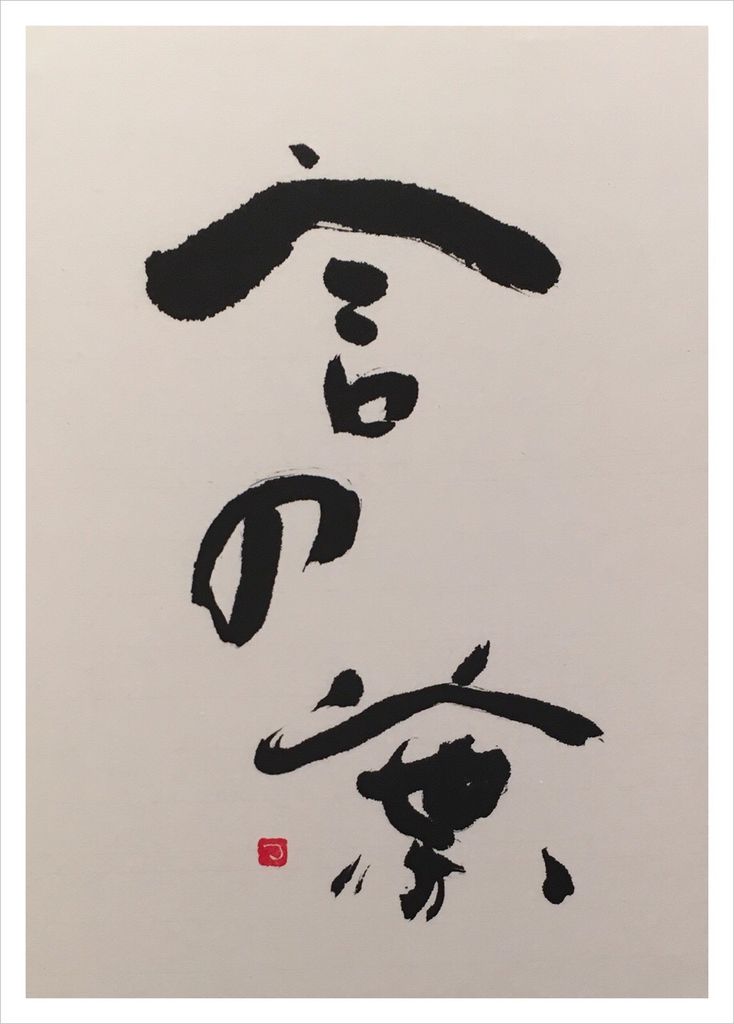 言の葉